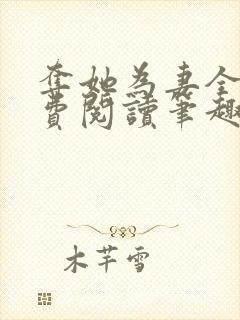 奪她為妻全
費閱讀筆趣
木芊雪